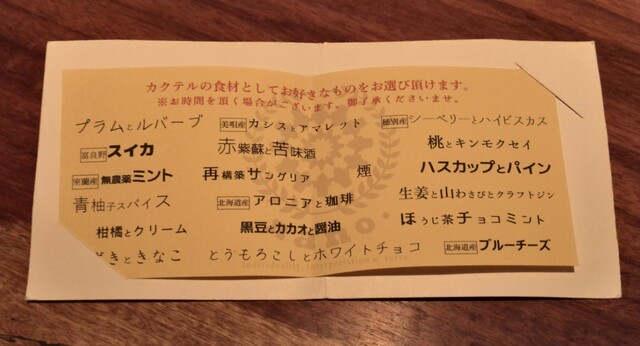 カクテルの食材としてお好きなものをお選び頂けます。
※お時間を頂く場合がございます。御了承くださいませ。
プラムとルバーブ
美唄産 カシスとアマレット
穂別産 シーベリーとハイビスカス
富良野 スイカ
赤紫蘇と苦味酒
桃とキンモクセイ
室蘭産 無農薬ミント
再構築サングリア
煙
ハスカップとパイン
青柚子スパイス
北海道産 アロニアと珈琲
生姜と山わさびとクラフトジン
柑橘とクリーム
黒豆とカカオと醤油
ほうじ茶チョコミント
きときなこ
とうもろこしとホワイトチョコ
北海道産 ブルーチーズ